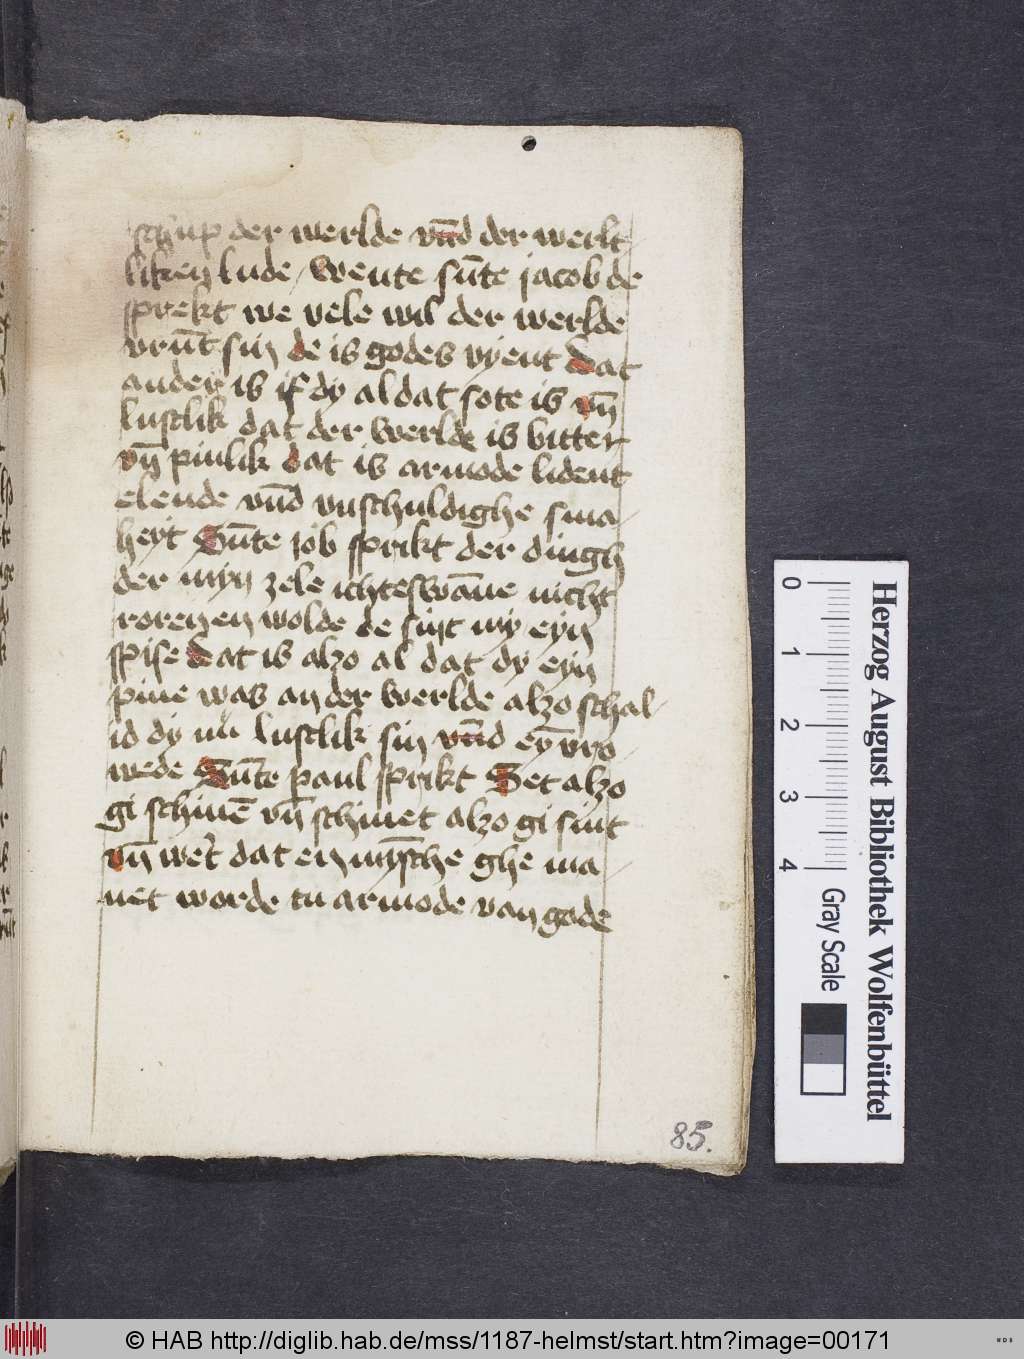 schup der werlde vn̄d der werlt
liken lude / wente sūte jacob de
sprekt we vele wil der werlde
vrūt sin de is godes vyent dat
ander is if dy al dat sote is vn̄
lustlik dat der werlde is bitter
vn̄ pinlik dat is armode lident
elende vn̄d vnschuldighe sma
heyt Sūte iob sprikt der dingh
der myn zele ichteswāne nicht
roren en wolde de sint my eyn
spise dat is alzo al dat dy eyn
pine was an der werlde alzo schal
id dy nu lustlik sin vn̄d eȳ vro
wede Sūte paul sprikt Set alzo
gi schinē vn̄ schinet alzo gi sint
vn̄ wer̄ dat en mȳsche ghe ma
net worde tu armode van gode
85.
0 1 2 3 4
Gray Scale
Herzog August Bibliothek Wolfenbüttel
© HAB http://diglib.hab.de/mss/1187-helmst/start.htm?image=00171